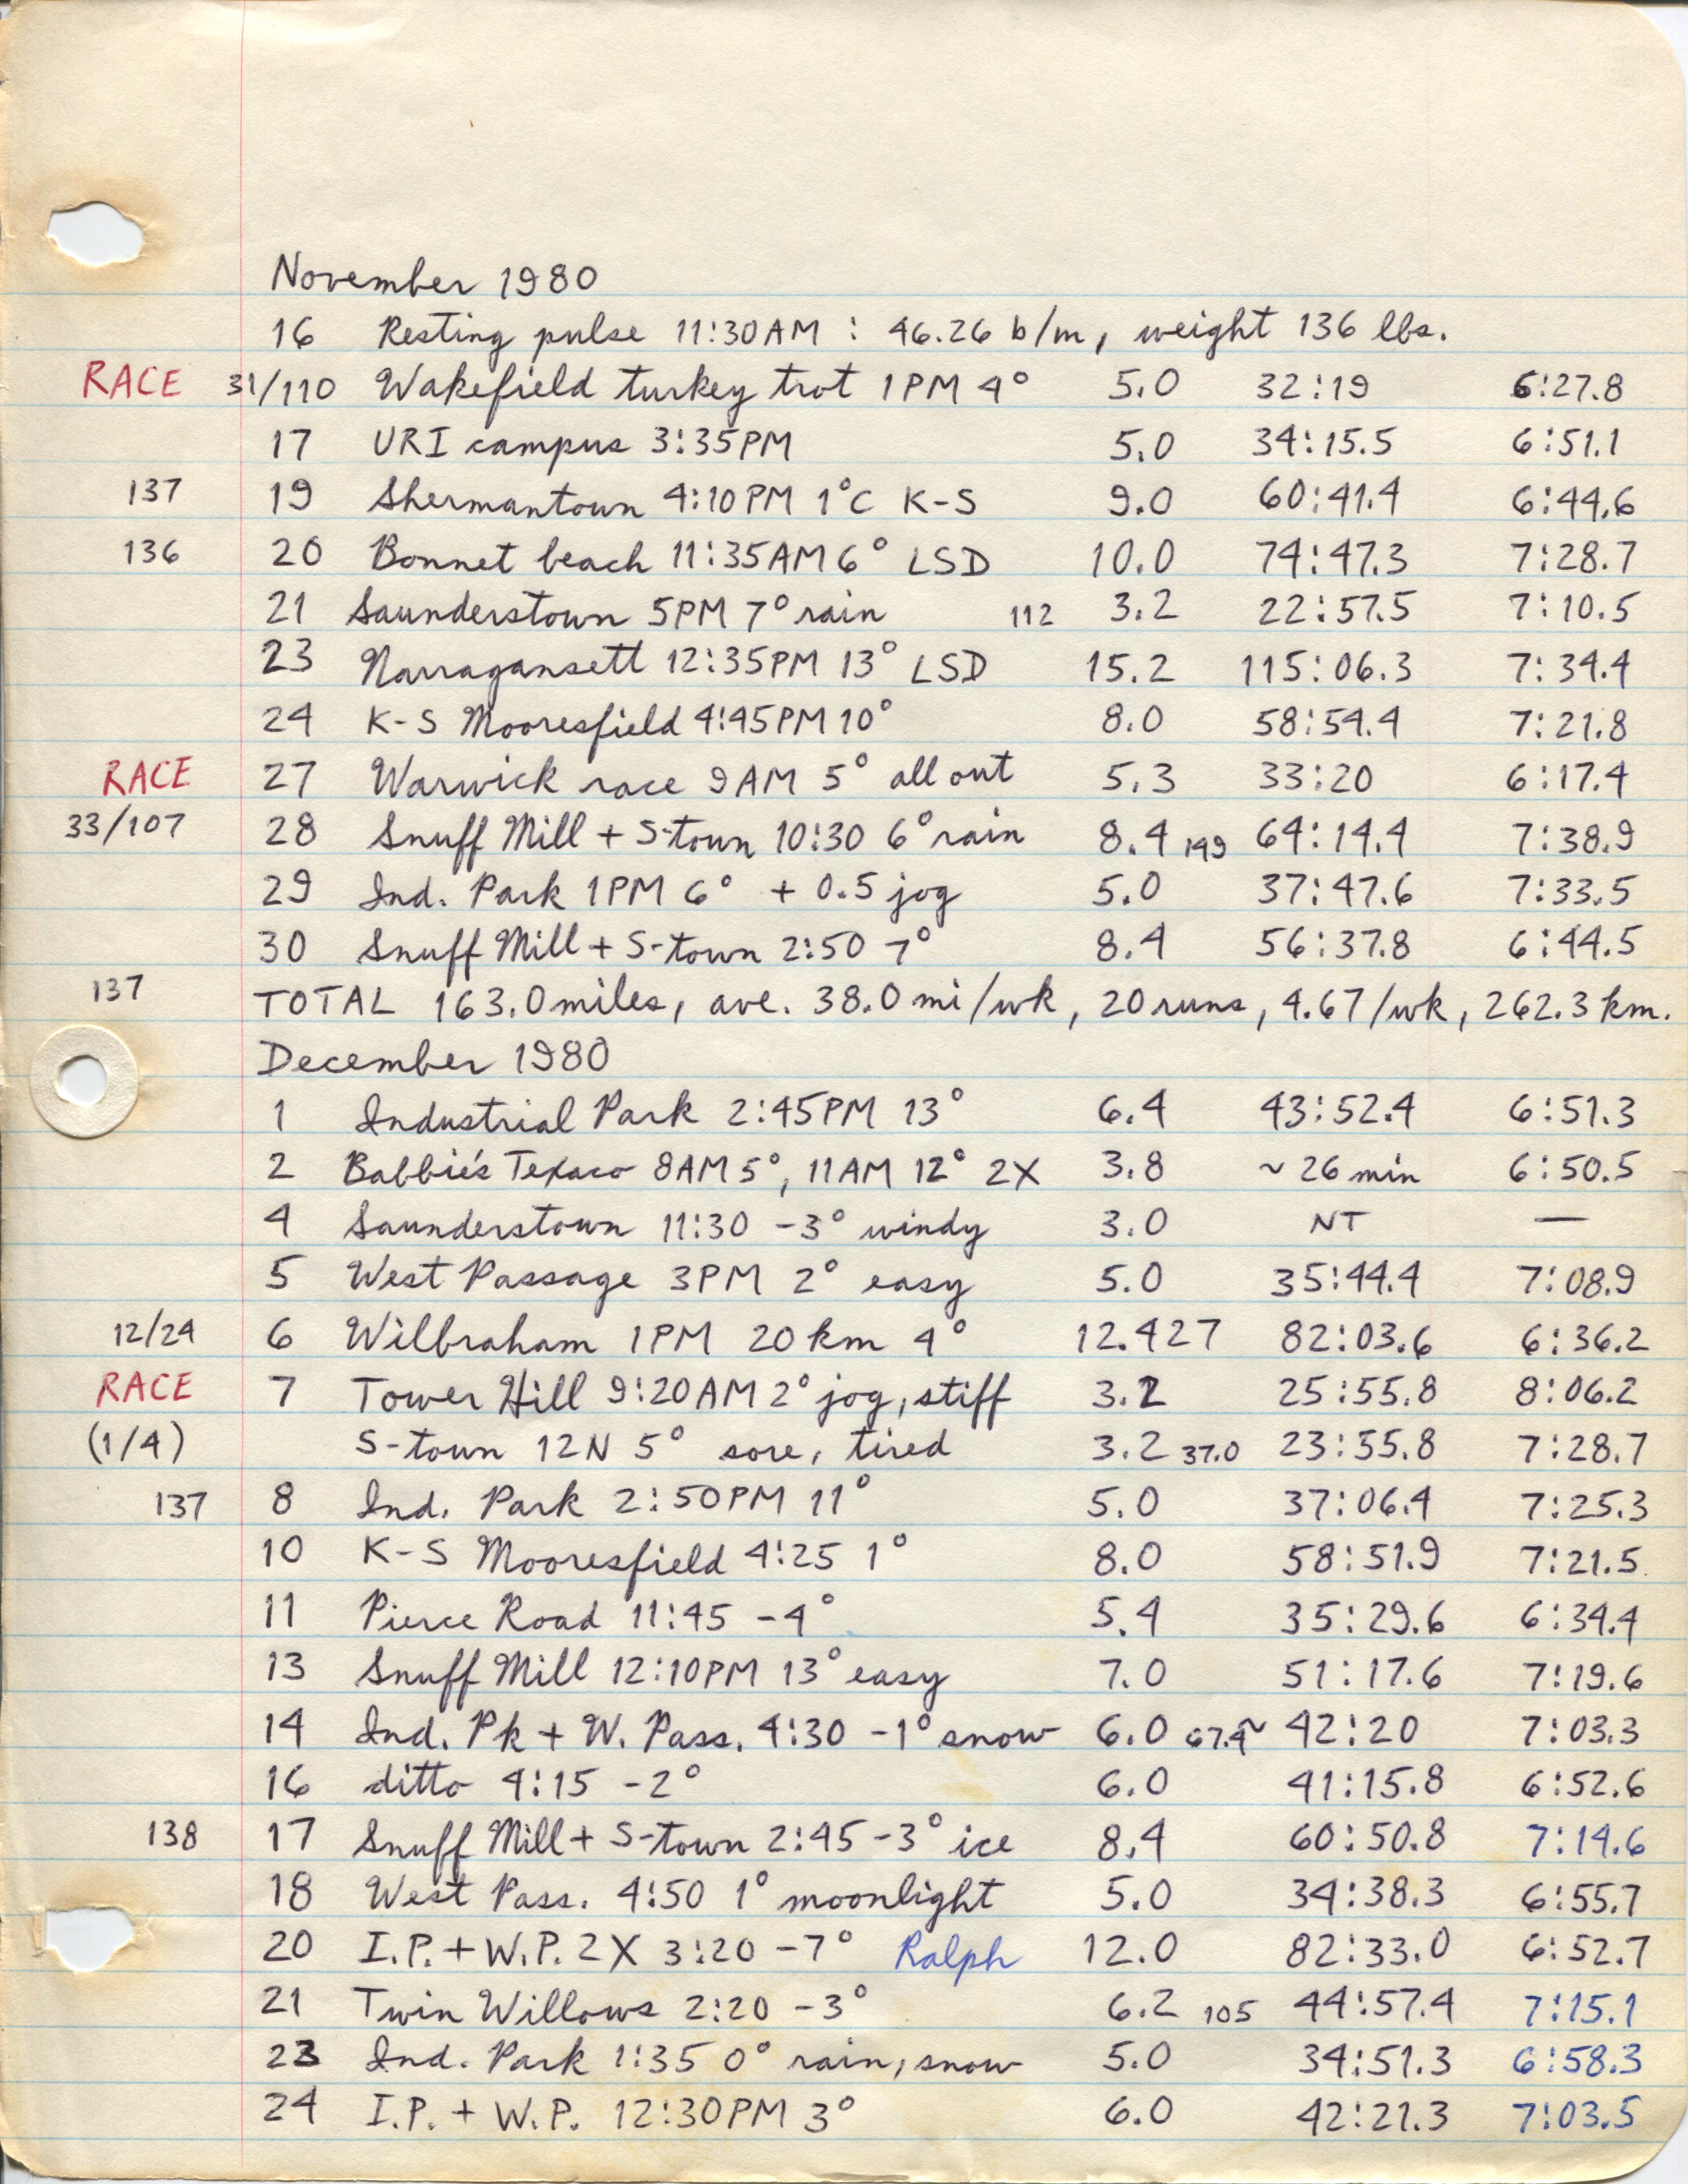 November 1980
16 Resting pulse 11:30AM : 46.26 b/m, weight 136 lbs.
RACE 31/110 Wakefield turkey trot 1PM 4° 5.0 32:19 6:27.8
17 URI campus 3:35PM 5.0 34:15.5 6:51.1
137 19 Shermantown 4:10PM 1°C K-S 9.0 60:41.4 6:44.6
136 20 Bonnet beach 11:35AM 6° LSD 10.0 74:47.3 7:28.7
21 Saunderstown 5PM 7° rain 112 3.2 22:57.5 7:10.5
23 Narragansett 12:35PM 13° LSD 15.2 115:06.3 7:34.4
24 K-S Mooresfield 4:45PM 10° 8.0 58:54.4 7:21.8
RACE 27 Warwick race 9AM 5° all out 5.3 33:20 6:17.4
33/107 28 Snuff Mill + S-town 10:30 6° rain 8.4 149 64:14.4 7:38.9
29 Ind. Park 1PM 6° + 0.5 jog 5.0 37:47.6 7:33.5
30 Snuff Mill + S-town 2:50 7° 8.4 56:37.8 6:44.5
137 TOTAL 163.0 miles, ave. 38.0 mi/wk, 20 runs, 4.67/wk, 262.3 km.
December 1980
1 Industrial Park 2:45PM 13° 6.4 43:52.4 6:51.3
2 Babbie's Texaco 8AM 5°, 11AM 12° 2X 3.8 ~ 26 min 6:50.5
4 Saunderstown 11:30 -3° windy 3.0 NT —
5 West Passage 3PM 2° easy 5.0 35:44.4 7:08.9
12/24 6 Wilbraham 1PM 20 km 4° 12.427 82:03.6 6:36.2
RACE 7 Tower Hill 9:20AM 2° jog, stiff 3.2 25:55.8 8:06.2
(1/4) S-town 12N 5° sore, tired 3.2 37.0 23:55.8 7:28.7
137 8 Ind. Park 2:50PM 11° 5.0 37:06.4 7:25.3
10 K-S Mooresfield 4:25 1° 8.0 58:51.9 7:21.5
11 Pierce Road 11:45 -4° 5.4 35:29.6 6:34.4
13 Snuff Mill 12:10PM 13° easy 7.0 51:17.6 7:19.6
14 Ind. Pk + W. Pass. 4:30 -1° snow 6.0 67.4 ~ 42:20 7:03.3
16 ditto 4:15 -2° 6.0 41:15.8 6:52.6
138 17 Snuff Mill + S-town 2:45 -3° ice 8.4 60:50.8 7:14.6
18 West Pass. 4:50 1° moonlight 5.0 34:38.3 6:55.7
20 I.P. + W.P. 2X 3:20 -7° Ralph 12.0 82:33.0 6:52.7
21 Twin Willows 2:20 -3° 6.2 105 44:57.4 7:15.1
23 Ind. Park 1:35 0° rain, snow 5.0 34:51.3 6:58.3
24 I.P. + W.P. 12:30PM 3° 6.0 42:21.3 7:03.5